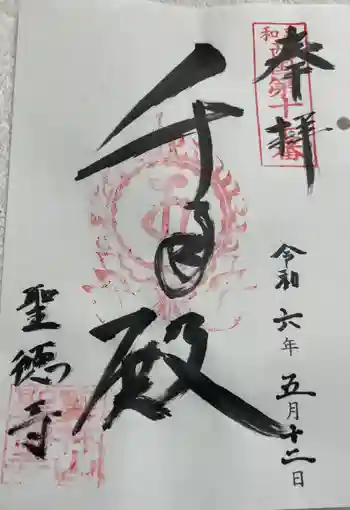 奉拝
千日殿
令和六年 五月十二日
聖徳寺